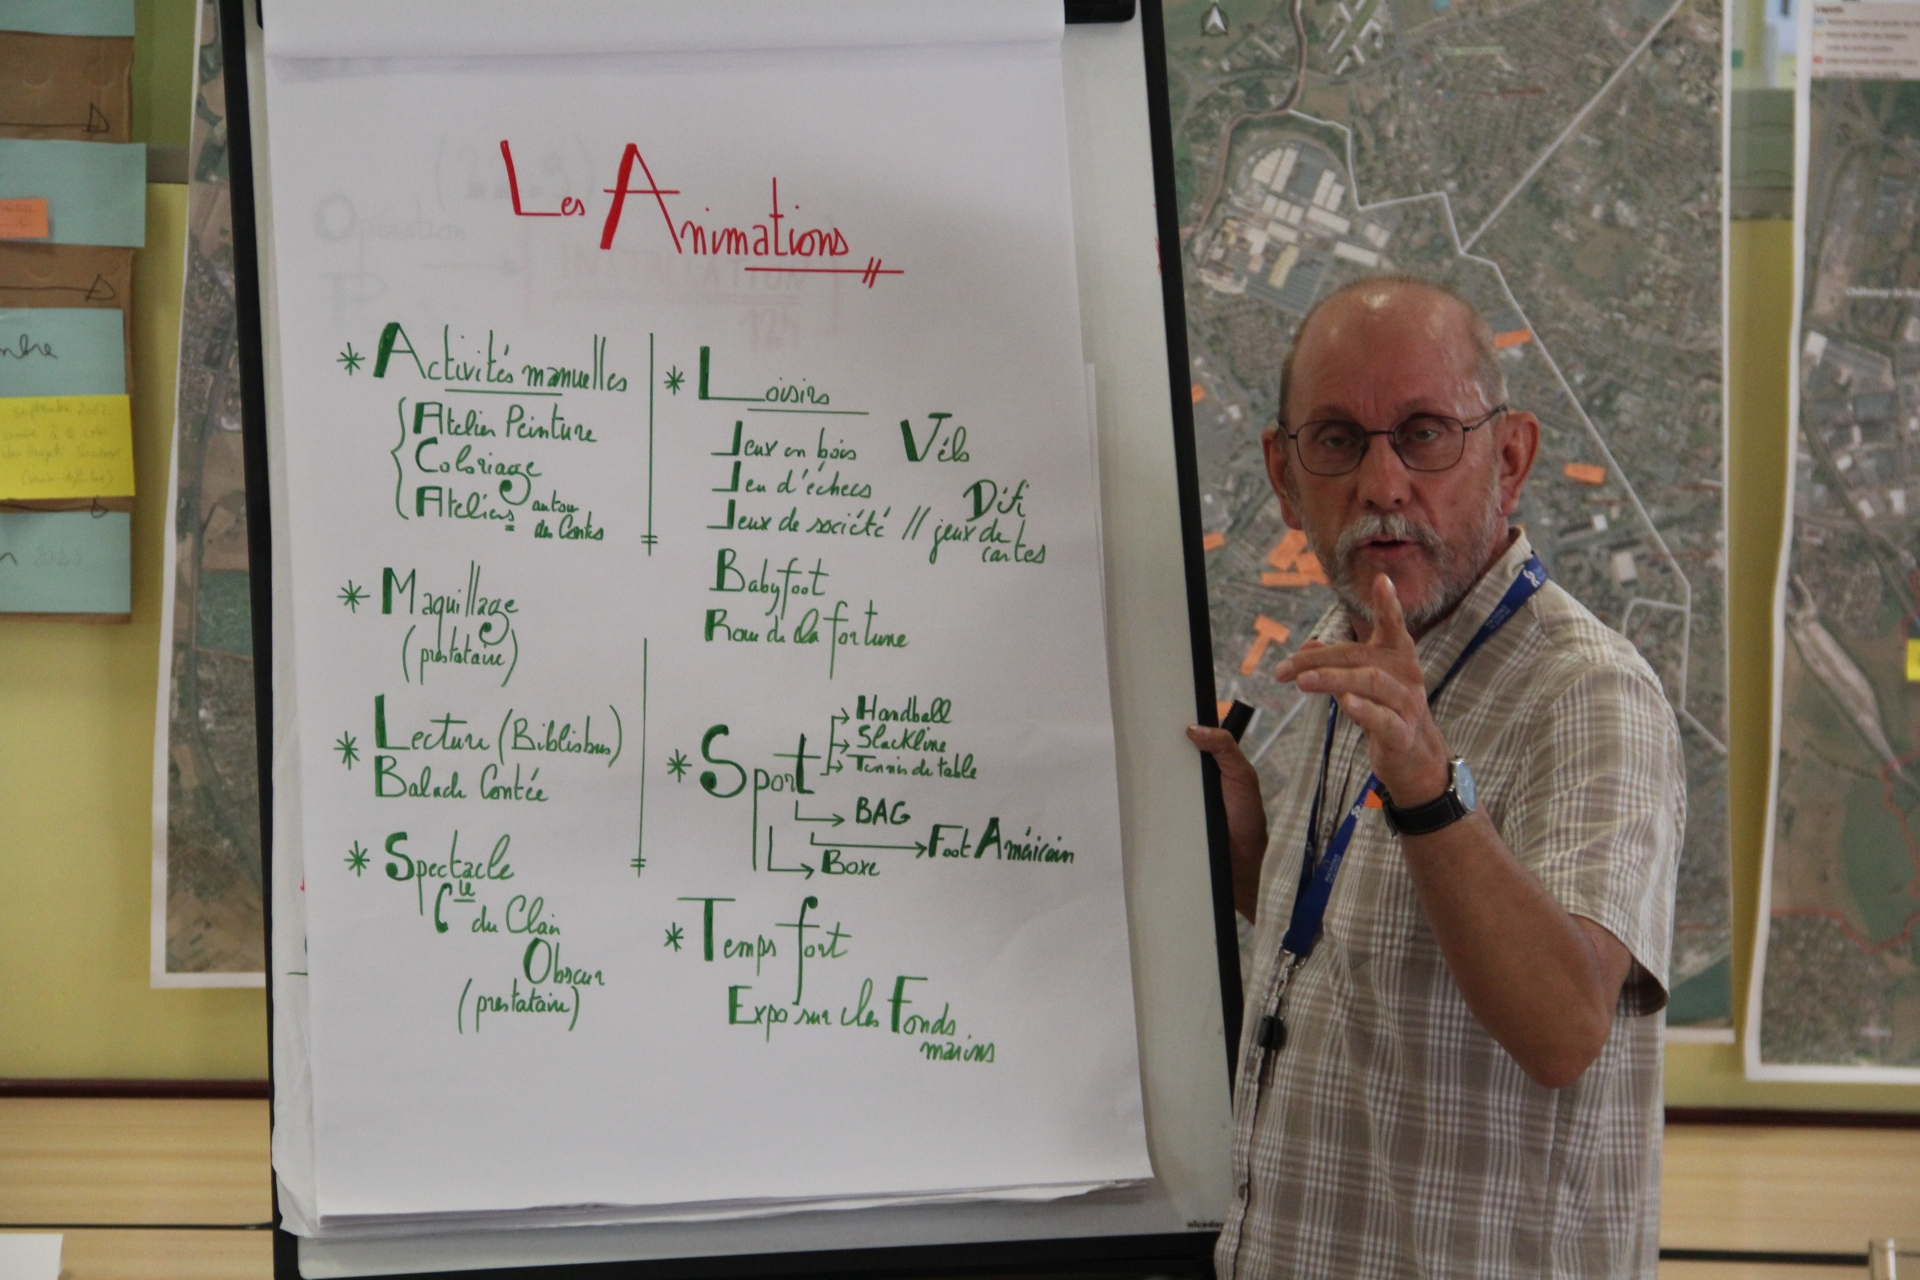 Les Animations
* Activités manuelles
Atelier Peinture
Coloriage
Ateliers autour
des Contes
* Maquillage
(prestataire)
* Lecture (Biblisbus)
Balade Contée
* Spectacle
Cie du Clair
Obscur
(prestataire)
* Loisirs
Jeux en bois Vélo
Jeu d'échecs Défi
Jeux de société // jeux de
cartes
Babyfoot
Roue de la fortune
* Sport
Handball
Slackline
Tennis de table
BAG
Foot Américain
Boxe
* Temps fort
Expo sur les Fonds
marins
(22.9)
Opération
INSTALLATION
12h
niceday